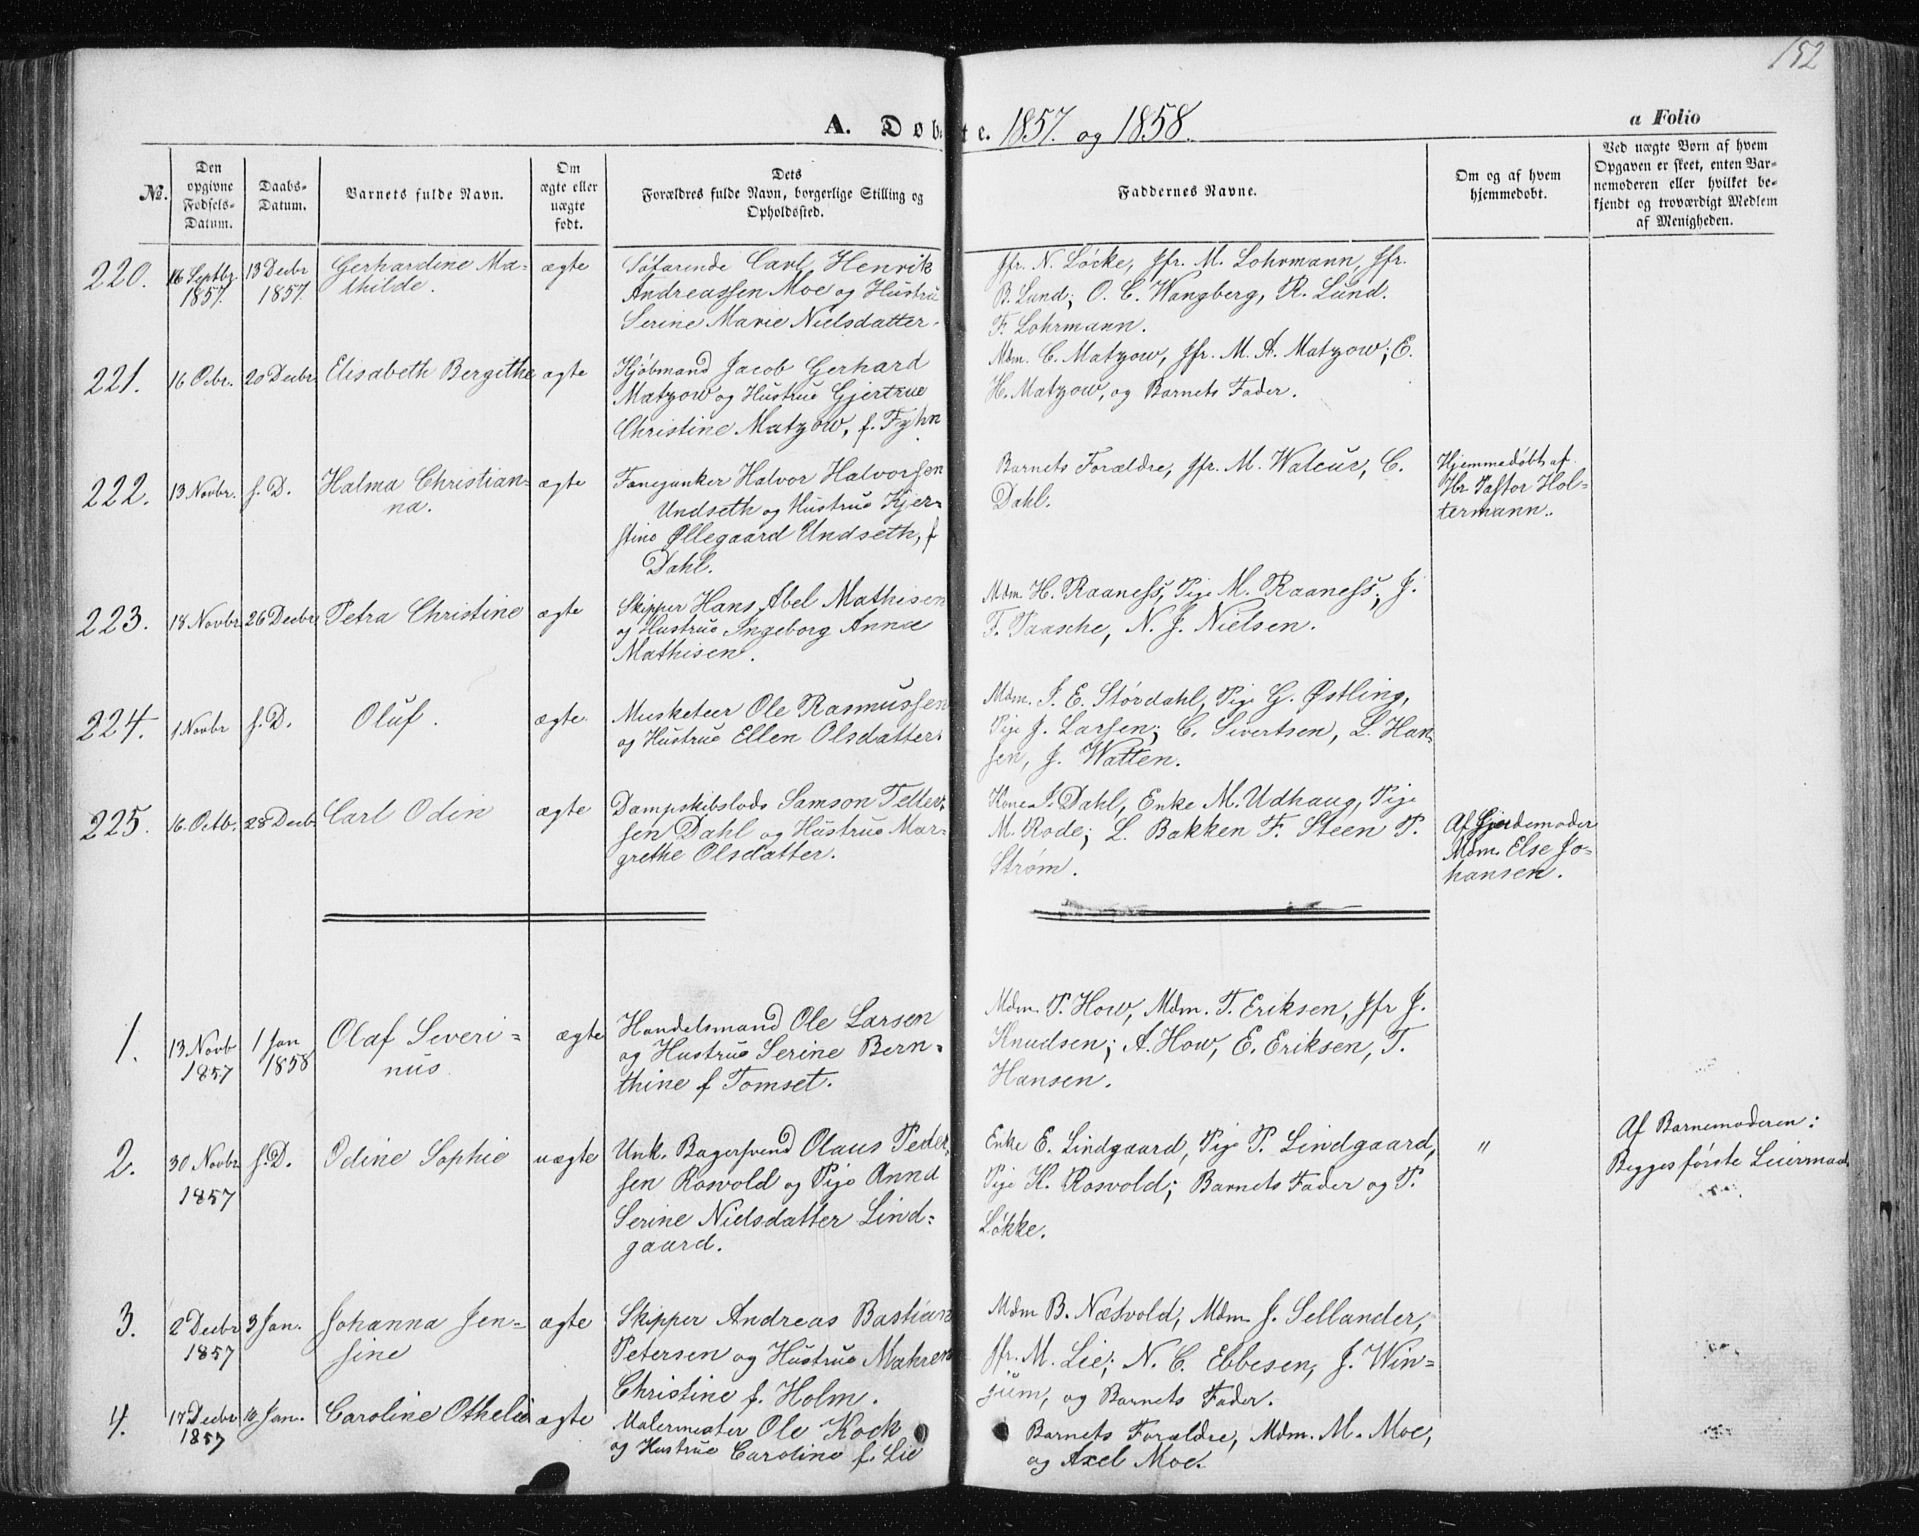 152
A. Døbte. 1857. og 1858.
a Folio
No.
Den opgivne Fødsels-Datum.
Daabs-Datum.
Barnets fulde Navn.
Om ægte eller uægte født.
Dets Forældres fulde Navn, borgerlige Stilling og Opholdssted.
Faddernes Navne.
Om og af hvem hjemmedøbt.
Ved uægte Børn af hvem Opgaven er skeet, enten Barnemoderen eller hvilket bekjendt og troværdigt Medlem af Menigheden.
220. 16 Septbr. 1857. 13 Decbr 1857.
Gerhardine Ma-
thilde.
ægte
Søfarende Carl Henrik
Andreassen Moe og Hustru
Serine Marie Nielsdatter.
Jfr. N. Løcke, Jfr. M. Lohrmann, Jfr.
B. Lund; O. C. Wangberg, R. Lund.
F. Lohrmann.
221. 16 Ocbr. 20 Decbr.
Elisabeth Bergithe
ægte
Kjøbmand Jacob Gerhard
Matzow og Hustrue Gjertrue
Christine Matzow, f. Fyhn
Mdm. C. Matzow, Jfr. M. A. Matzow; E.
H. Matzow, og Barnets Fader.
222. 13 Novbr. s. D.
Halma Christian-
na.
ægte
Fanejunker Halvor Halvorsen
Undseth og Hustrue Kjer-
stine Øllegaard Undseth, f
Dahl.
Barnets Forældre, Jfr. M. , C.
Dahl.
Hjemmedøbt af
Hr. Pastor Hol-
termann.
223. 18 Novbr. 26 Decbr.
Petra Christine
ægte
Skipper Hans Abel Mathisen
og Hustrue Ingeborg Anna
Mathisen.
Mdm. H. Raaness, Pige M. Raaness; J.
F. Paasche, N. J. Nielsen.
224. 1 Novbr s. D.
Oluf.
ægte.
Musketeer Ole Rasmussen
og Hustrue Ellen Olsdatter.
Mdm. J. E. Størdahl, Pige G. Østling,
Pige J. Larsen; C. Sivertsen, L. Han-
sen, J. Watten.
225. 16. Octb. 28 Decb.
Carl Odin
ægte
Dampskibslods Samson Petter-
sen Dahl og Hustrue Mar-
grethe Olsdatter.
Kone J. Dahl, Enke M. Udhaug, Pige
M. Rode; L. Bakken F. Steen P.
Strøm.
Af Gjordemoder
Mdm. Else Jo-
hansen.
1. 13 Novb 1857 1 Jan 1858
Olaf Severi-
nus.
ægte
Handelsmand Ole Larsen
og Hustrue Serine Bern-
thine f Tomset.
Mdm. P. How, Mdm. T. Eriksen, Jfr J.
Knudsen; A. How, E. Eriksen, T.
Hansen.
2. 30 Novbr 1857 s. D.
Odine Sophie
uægte
Unk. Bagersvend Olaus Peder-
sen Rosvold og Pige Anna
Serine Nielsdatter Lind-
gaard.
Enke E. Lindgaard, Pige P. Lindgaard,
Pige H. Rosvold; Barnets Fader og P.
Løkke.
"
Af Barnemoderen:
Begges første Leiermaal
3. 2 Decbr 1857 3 Jan.
Johanna Jen-
sine
ægte
Skipper Andreas Bastian
Petersen og Hustrue Mahren
Christine f. Holm.
Mdm B. Næsvold, Mdm J. Sellander,
Jfr. M. Lie; N. C. Ebbesen, J. Win-
sjum, og Barnets Fader.
4. 17 Decbr 1857 10 Jan.
Caroline Othelie
ægte
Malermester Ole Kock
og Hustrue Caroline f. Lie
Barnets Forældre, Mdm. M. Moe,
og Axel Moe.